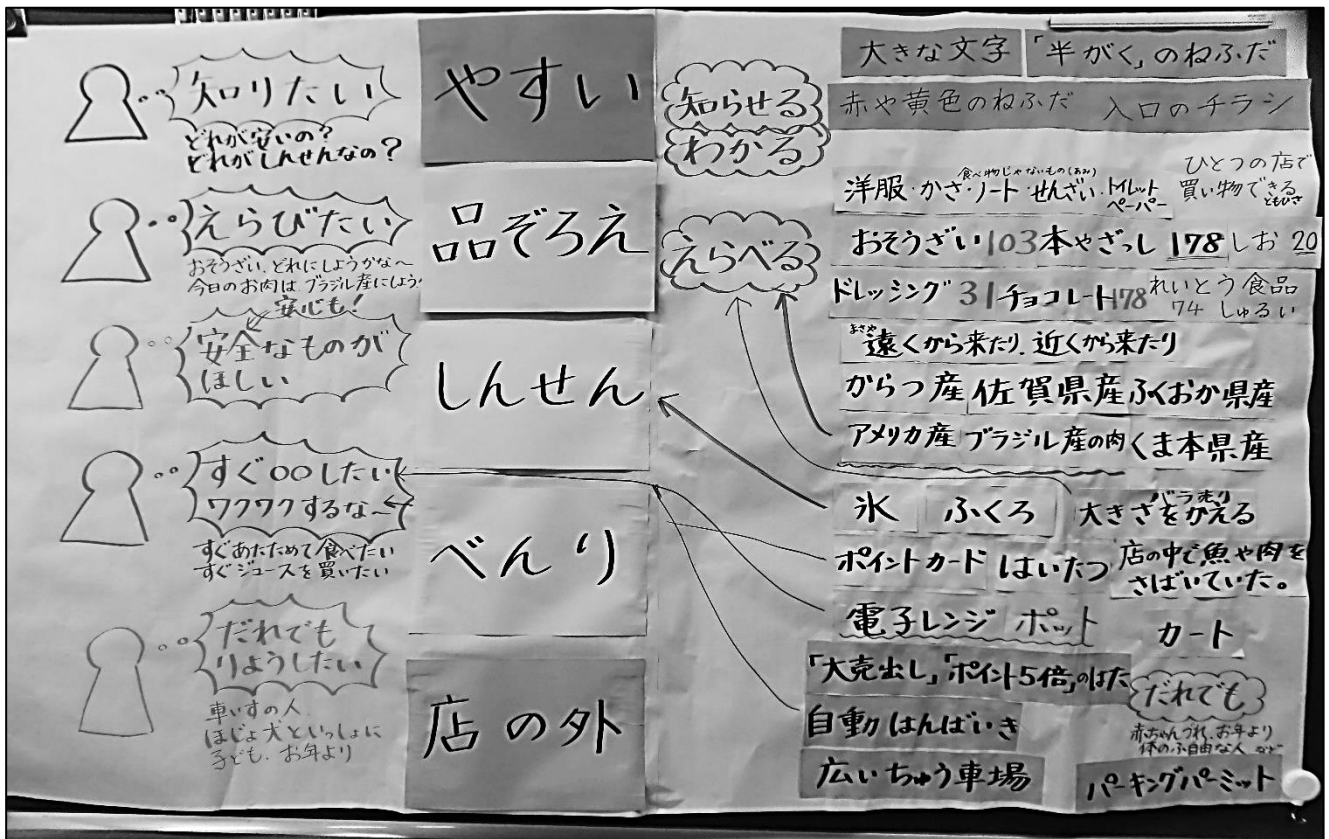 知りたい
どれが安いの？
どれがしんせんなの？
えらびたい
おそうざい、どれにしようかな〜
今日のお肉は、ブラジル産にしよう！
安心も！
安全なものが
ほしい
すぐ○○したい
ワクワクするな〜
すぐあたためて食べたい
すぐジュースを買いたい
だれでも
りようしたい
車いすの人
ほじょ犬といっしょに
子ども、お年より
やすい
品ぞろえ
しんせん
べんり
店の外
知らせる
わかる
えらべる
大きな文字 「半がく」のねふだ
赤や黄色のねふだ 入口のチラシ
食べ物じゃないもの(あみ)
洋服・かさ・ノート・せんざい・トイレットペーパー
ひとつの店で
買い物できる
ともひさ
おそうざい103 本やざっし 178 しお 20
ドレッシング 31 チョコレート178 れいとう食品
74 しゅるい
まさや
遠くから来たり、近くから来たり
からつ産 佐賀県産 ふくおか県産
アメリカ産 ブラジル産の肉 くま本県産
バラ売り
氷 ふくろ 大きさをかえる
ポイントカード はいたつ 店の中で魚や肉を
さばいていた。
電子レンジ ポット カート
「大売出し」「ポイント5倍」のはた
だれでも
赤ちゃんづれ、お年より
体のふ自由な人 など
自動はんばいき
広いちゅう車場 パーキングパーミット